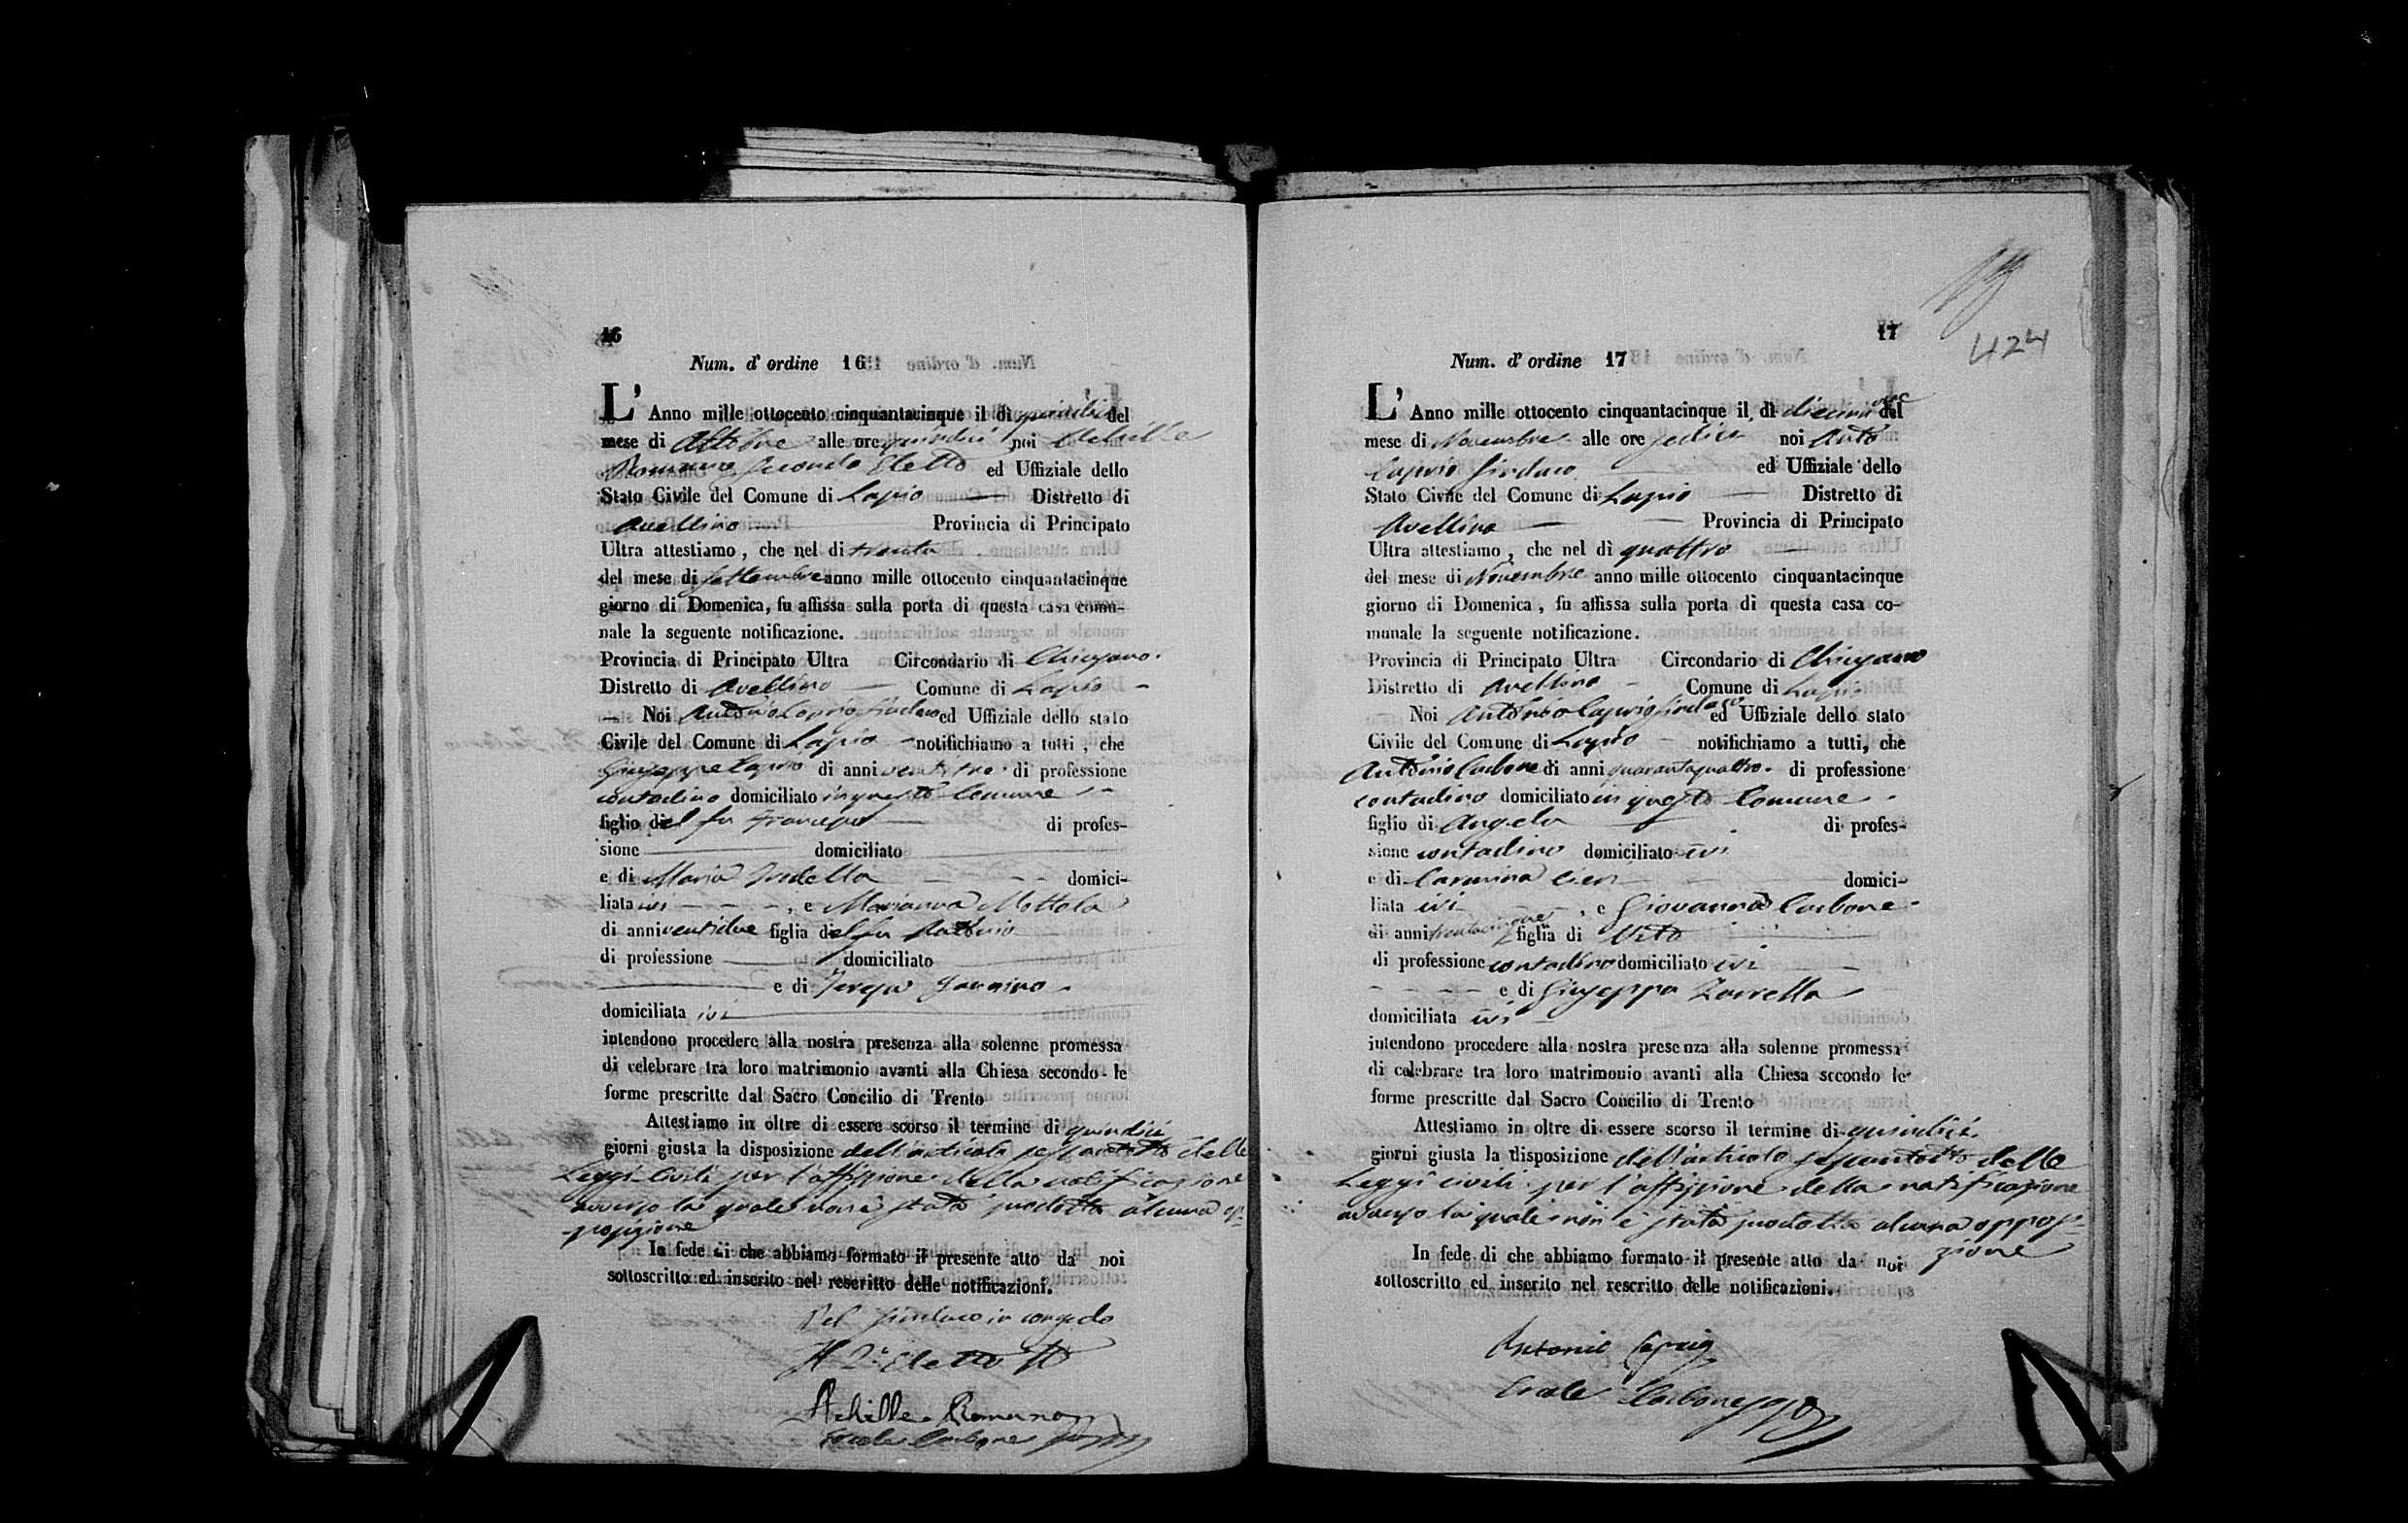 16
Num. d' ordine 16
L' Anno mille ottocento cinquantacinque il dì quindici del
mese di Ottobre alle ore quindici noi Achille
Romano Secondo Eletto ed Uffiziale dello
Stato Civile del Comune di Lapio Distretto di
Avellino Provincia di Principato
Ultra attestiamo, che nel dì trenta
del mese di Settembre anno mille ottocento cinquantacinque
giorno di Domenica, fu affissa sulla porta di questa casa comu-
nale la seguente notificazione.
Provincia di Principato Ultra Circondario di Chiusano.
Distretto di Avellino Comune di Lapio
Noi Antonio Caprio Sindaco ed Uffiziale dello stato
Civile del Comune di Lapio notifichiamo a tutti, che
Giuseppe Caprio di anni ventitre di professione
contadino domiciliato in questo Comune
figlio del fu Francesco di profes-
sione domiciliato
e di Maria domici-
liata ivi, e Marianna Mottola
di anni ventidue figlia del fu Antonio
di professione domiciliato
e di Teresa
domiciliata ivi
intendono procedere alla nostra presenza alla solenne promessa
di celebrare tra loro matrimonio avanti alla Chiesa secondo le
forme prescritte dal Sacro Concilio di Trento
Attestiamo in oltre di essere scorso il termine di quindici
giorni giusta la disposizione dell'articolo sessantotto delle
Leggi Civili per l'affissione della notificazione
avverso la quale non è stata prodotta alcuna op-
posizione
In fede di che abbiamo formato il presente atto da noi
sottoscritto ed inserito nel rescritto delle notificazioni.
Pel Sindaco in congedo
Il 2º Eletto
Achille Romano
Carbone
17
424
Num. d' ordine 17
L' Anno mille ottocento cinquantacinque il dì diecinove del
mese di Novembre alle ore sedici noi Anto
Caprio Sindaco ed Uffiziale dello
Stato Civile del Comune di Lapio Distretto di
Avellino Provincia di Principato
Ultra attestiamo, che nel dì quattro
del mese di Novembre anno mille ottocento cinquantacinque
giorno di Domenica, fu affissa sulla porta di questa casa co-
munale la seguente notificazione.
Provincia di Principato Ultra Circondario di Chiusano
Distretto di Avellino Comune di Lapio
Noi Antonio Caprio Sindaco ed Uffiziale dello stato
Civile del Comune di Lapio notifichiamo a tutti, che
Antonio Carbone di anni quarantaquattro di professione
contadino domiciliato in questo Comune
figlio di Angelo di profes-
sione contadino domiciliato ivi
e di Carmina domici-
liata ivi, e Giovanna Carbone
di anni figlia di Vito
di professione contadino domiciliato ivi
e di Giuseppa Zarrella
domiciliata ivi
intendono procedere alla nostra presenza alla solenne promessa
di celebrare tra loro matrimonio avanti alla Chiesa secondo le
forme prescritte dal Sacro Concilio di Trento
Attestiamo in oltre di essere scorso il termine di quindici
giorni giusta la disposizione dell'articolo sessantotto delle
Leggi civili per l'affissione della notificazione
avverso la quale non è stata prodotta alcuna opposi-
zione
In fede di che abbiamo formato il presente atto da noi
sottoscritto ed inserito nel rescritto delle notificazioni.
Antonio Caprio
Carbone